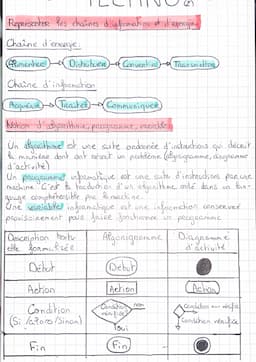 TECHNO
Représenter les chaînes d'information et d'énergie.
Chaîne d'énergie.
Alimenter → Distribuer → Convertir → Transmettre
Chaîne d'information
Acquérir → Traiter → Communiquer
Notion d'algorithme, programme, variable
Un algorithme est une suite ordonnée d'instructions qui décrit
la manière dont doit être résolu un problème (algorigramme, diagramme
d'activité)
Un programme informatique est une suite d'instructions par une
machine. C'est la traduction d'un algorithme créé dans un lan-
gage compréhensible par la machine.
Une variable informatique est une information conservée
provisoirement pour faire fonctionner un programme
Description textu- Algorigramme Diagramme
elle formalisée d'activité
Début Début
Action Action Action
Condition Condition non Condition non vérifiée
(Si/alors/Sinon) vérifiée Condition vérifiée
oui
Fin Fin